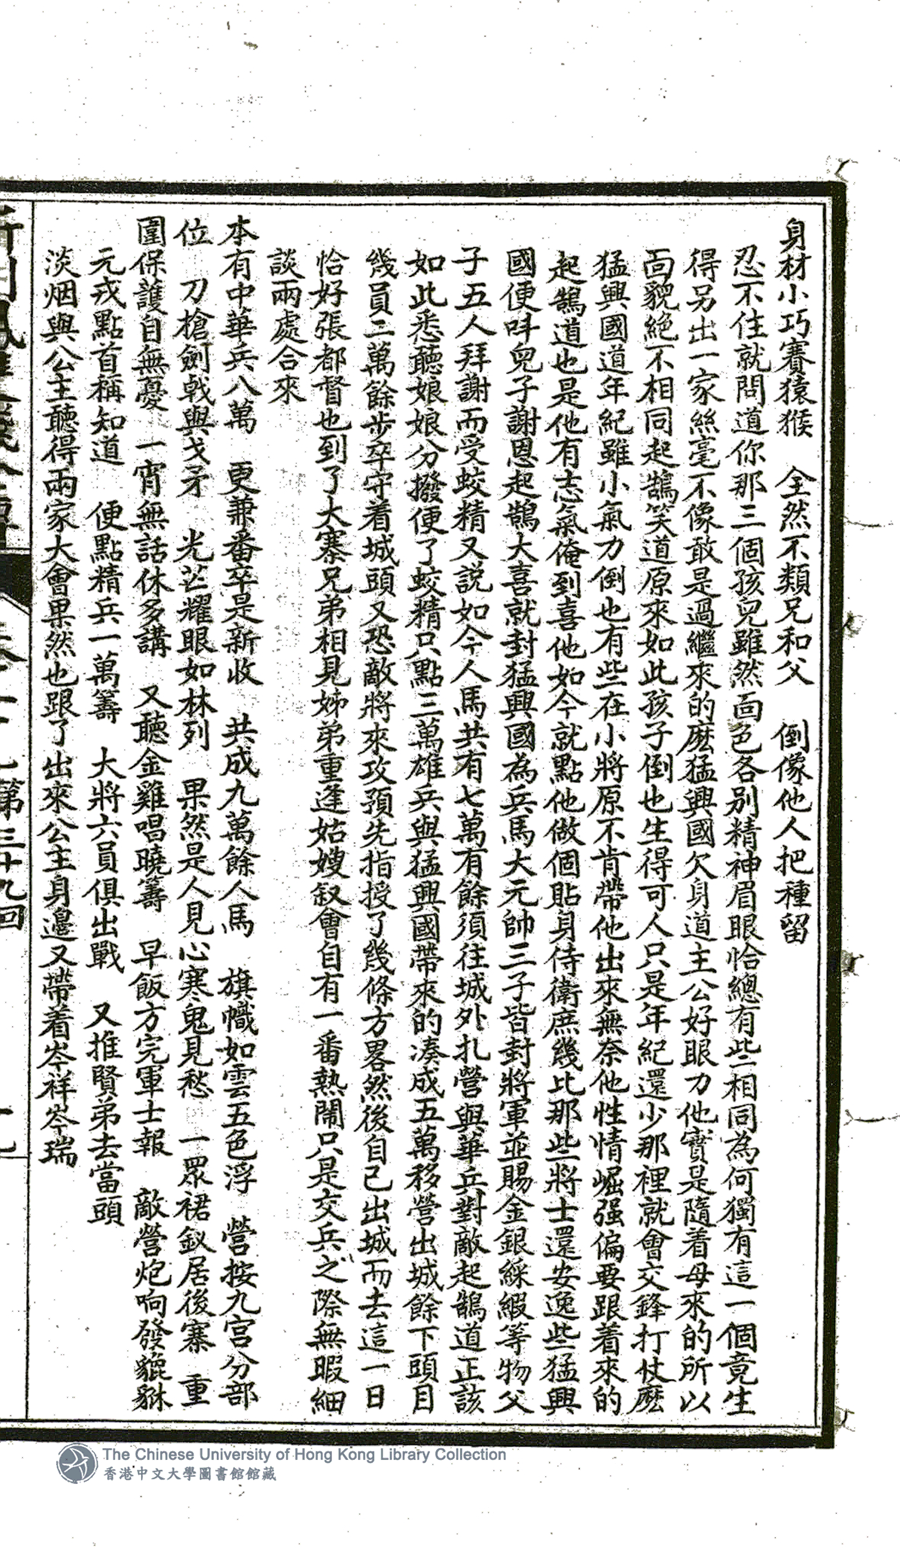 身材小巧賽猿猴　全然不類兄和父　倒像他人把種留
忍不住就問道你那三個孩兒雖然面色各別精神眉眼恰總有些相同為何獨有這一個竟生
得另出一家絲毫不像敢是過繼來的麽猛興國欠身道主公好眼力他實是隨着母來的所以
面貌絶不相同起鵠笑道原來如此孩子倒也生得可人只是年紀還少那裡就會交鋒打仗麽
猛興國道年紀雖小氣力倒也有些在小將原不肯帶他出來無奈他性情崛强偏要跟着來的
起鵠道也是他有志氣俺到喜他如今就點他做個貼身侍衛庶幾比那些將士還安逸些猛興
國便呌兒子謝恩起鵠大喜就封猛興國為兵馬大元帥三子皆封將軍並賜金銀綵緞等物父
子五人拜謝而受蛟精又説如今人馬共有七萬有餘須往城外扎營與華兵對敵起鵠道正該
如此悉聽娘娘分撥便了蛟精只點三萬雄兵與猛興國帶來的凑成五萬移營出城餘下頭目
幾員二萬餘步卒守着城頭又恐敵將來攻預先指授了幾條方畧然後自己出城而去這一日
恰好張都督也到了大寨兄弟相見姊弟重逢姑嫂叙會自有一番熱鬧只是交兵之際無暇細
談兩處合來
本有中華兵八萬　更兼番卒是新收　共成九萬餘人馬　旗幟如雲五色浮　營按九宫分部
位　刀槍劍戟與戈矛　光芒耀眼如林列　果然是人見心寒鬼見愁　一眾裙釵居後寨　重
圍保護自無憂　一宵無話休多講　又聽金雞唱曉籌　早飯方完軍士報　敵營炮响發貔貅
元戎點首稱知道　便點精兵一萬籌　大將六員俱出戰　又推賢弟去當頭
淡烟與公主聽得兩家大會果然也跟了出來公主身邊又帶着岑祥岑瑞
第三十九回
The Chinese University of Hong Kong Library Collection
香港中文大學圖書館館藏